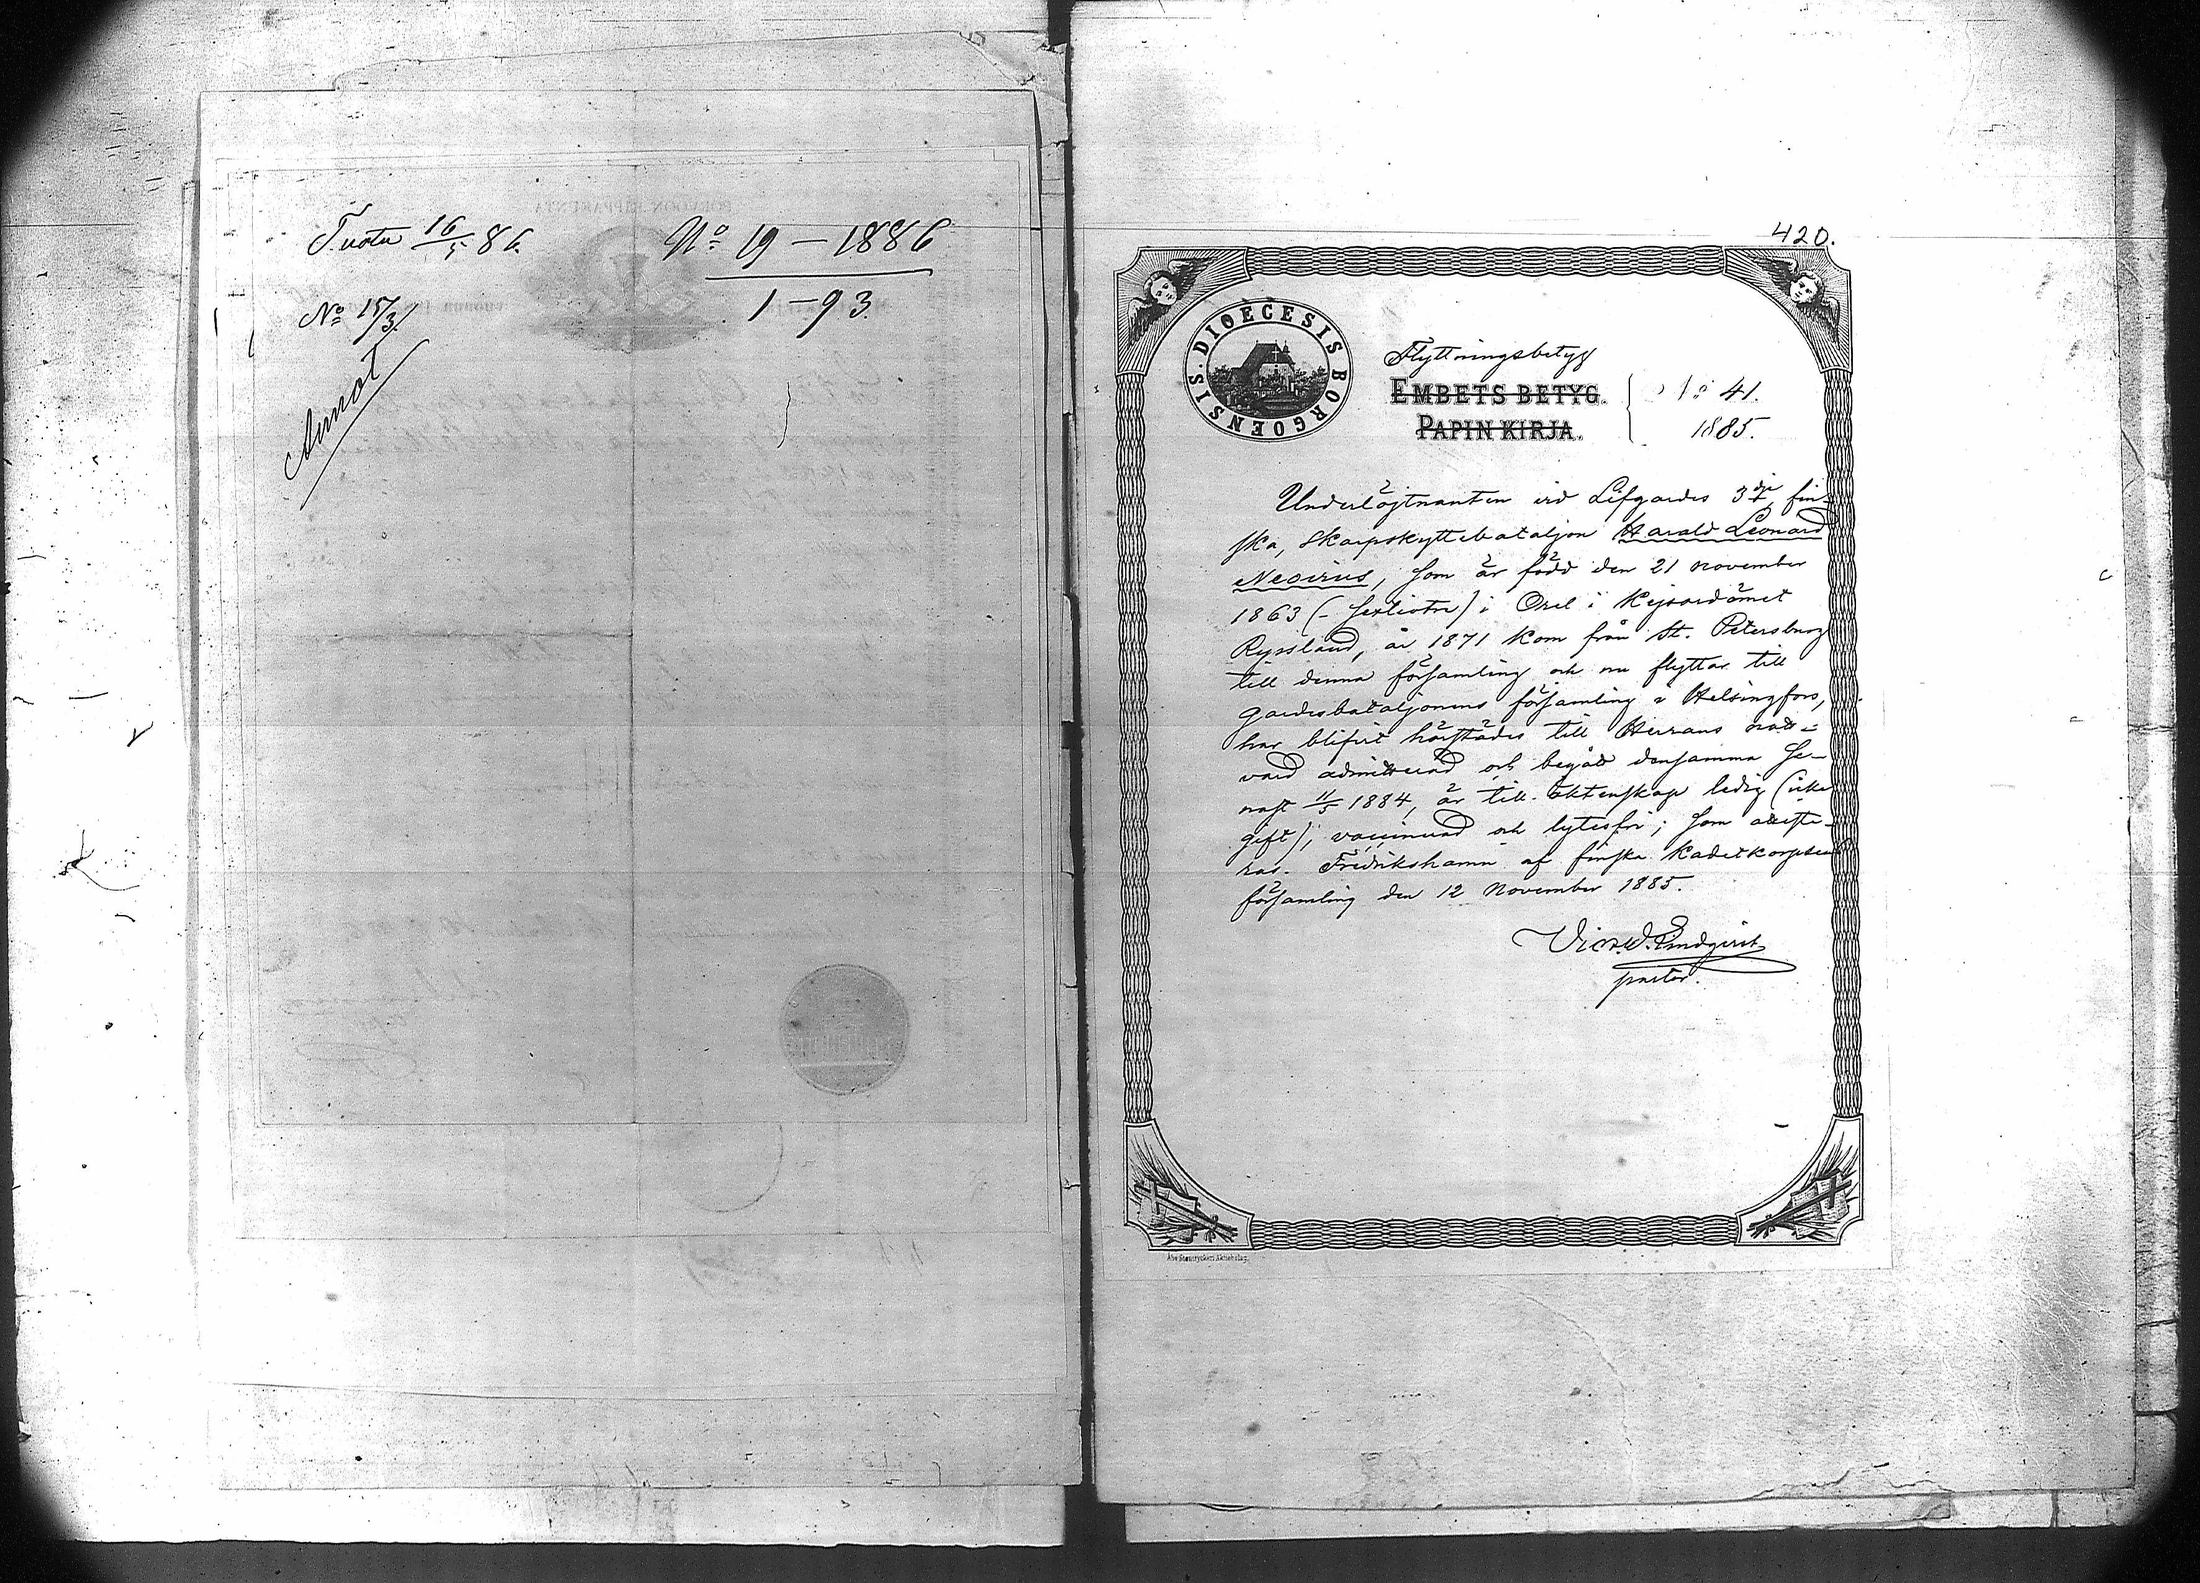 Tuotu 16/5 86.
No 19 – 1886
1–93.
No 15/3.
Annot
420.
DIOECESIS BORGOENSIS.
Flyttningsbetyg
EMBETS BETYG.
PAPIN KIRJA.
No 41.
1885.
Underlöjtnanten vid Lifgardes 3dje fin-
ska, Skarpskyttebataljon Harald Leonard
Neovius, som är född den 21 november
1863 (– sextiotre) i Orel i Kejsardömet
Ryssland, år 1871 kom från St. Petersburg
till denna församling och nu flyttar till
gardesbataljonens församling i Helsingfors,
har blifvit härstädes till Herrans natt-
vard admitterad och begått densamma se-
nast 11/5 1884, är till äktenskap ledig (icke
gift), vaccinerad och lytesfri; som atteste-
ras. Fredrikshamn af finska Kadettkorpsens
församling den 12 November 1885.
pastor.
Åbo Stentryckeri Aktiebolag.